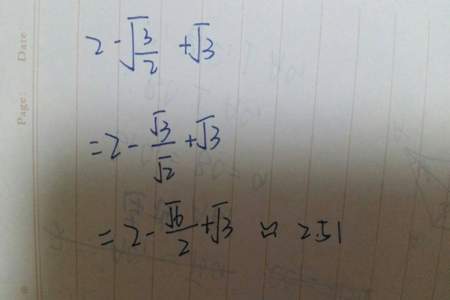 Date
Page:
2 - √(3/2) + √3
= 2 - √3/√2 + √3
= 2 - √6/2 + √3 ≈ 2.51